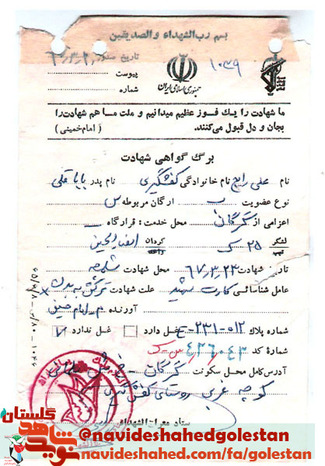 بسم رب الشهداء والصدیقین
۱۰۳۹
تاریخ
پیوست
شماره
جمهوری اسلامی ایران
ما شهادت را یک فوز عظیم میدانیم و ملت ما هم شهادت را
بجان و دل قبول میکنند. (امام خمینی)
برگ گواهی شهادت
نام علی نام خانوادگی کفشگیری نام پدر بابا قلی
نوع عضویت ب ارگان مربوطه س
اعزامی از گرگان محل خدمت: قرارگاه
لشگر ۲۵ ک گردان انصار الحسین
تیپ
تاریخ شهادت ۶۷/۳/۲۳ محل شهادت شلمچه
عامل شناسائی کارت علت شهادت ترکش به بدن
آورنده
شماره پلاک ۰۱۲-۲۳۱-ع غسل دارد غسل ندارد
شماره کد ۴۲۶۰۴۳
آدرس کامل محل سکونت گرگان
کوچه غربی روستای کفشگیری
ستاد معراج الشهداء
نوید شاهد گلستان
@navideshahedgolestan
navideshahed.com/fa/golestan